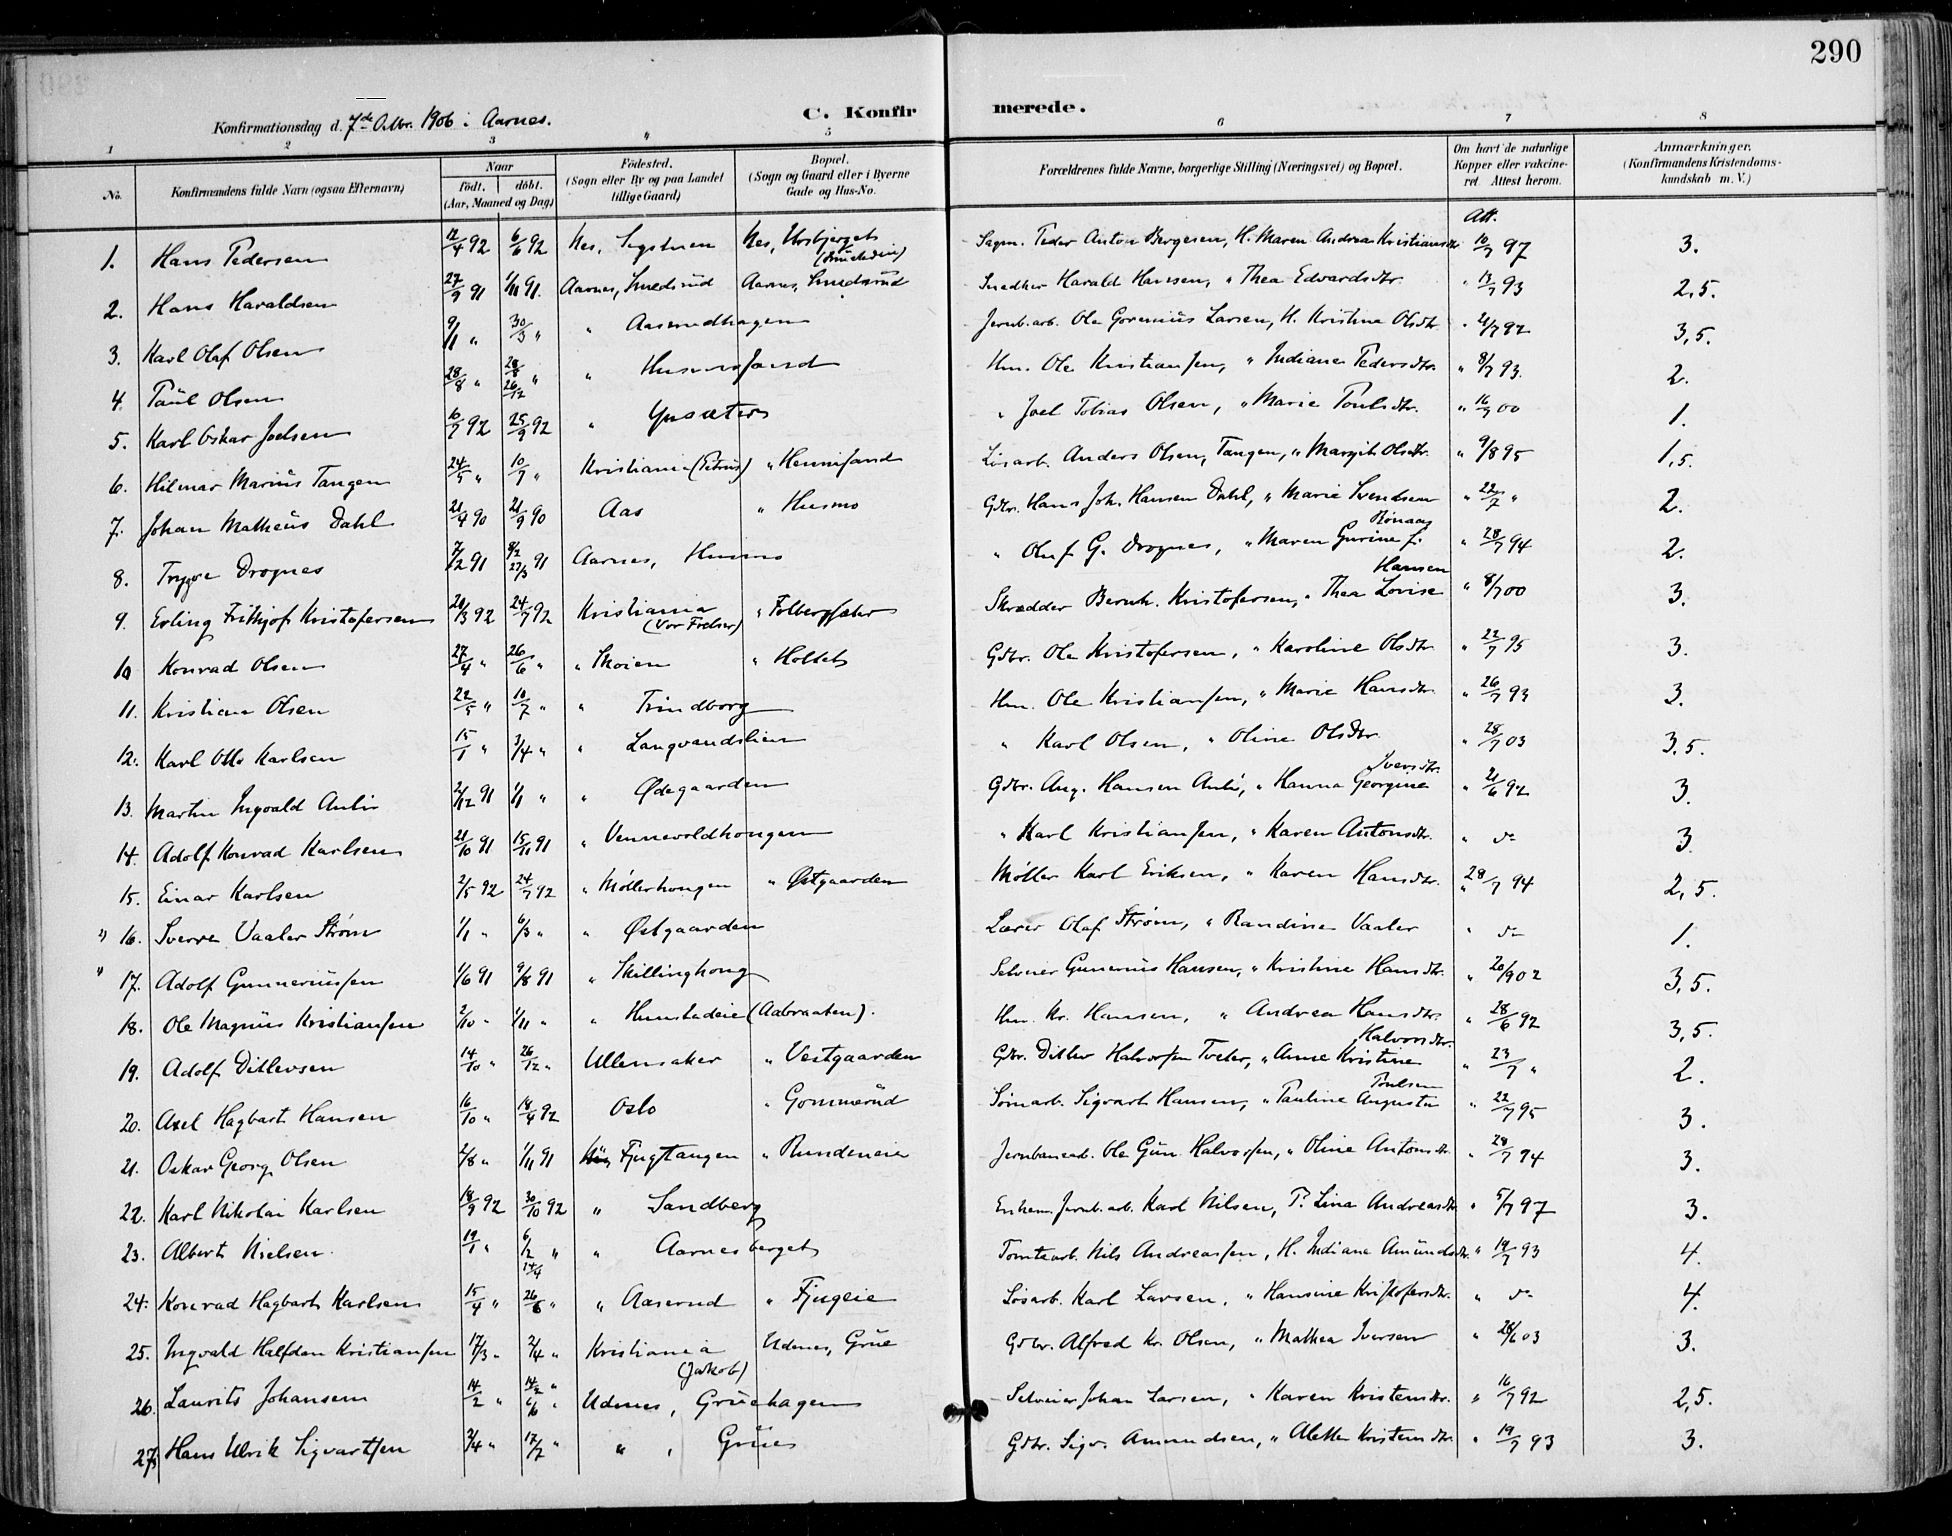 290
Konfirmationsdag d. 7de Oktbr. 1906 i Aarnes.
C. Konfirmerede.
1 2 3 4 5 6 7 8
No. Konfirmandens fulde Navn (ogsaa Efternavn) Naar født. døbt. (Aar, Maaned og Dag) Fødested. (Sogn eller By og paa Landet tillige Gaard) Bopæl. (Sogn og Gaard eller i Byerne Gade og Hus-No. Forældrenes fulde Navne, borgerlige Stilling (Næringsvei) og Bopæl. Om havt de naturlige Kopper eller vakcineret. Attest herom. Anmærkninger. (Konfirmandens Kristendomskundskab m. V.)
Att.
1. Hans Pedersen 12/4 92 6/6 92 Nes, Nes, Sagm. Peder Anton Bergesen, H. Maren Andrea Kristiansdtr 10/7 97 3.
2. Hans Haraldsen 27/9 91 1/11 91. Aarnes, Smedsrud Aarnes, Smedsrud Snedker Harald Hansen, " Thea Edvardsdtr. " 13/7 93 2,5.
3. Karl Olaf Olsen 9/1 " 30/3 " " Aaserudhagen Jernb.arb. Ole Larsen, H. Kristine Olsdtr. " 3,5.
4. Paul Olsen 28/8 " 28/8 26/12 " " Husmosand Hm. Ole Kristiansen, " Indiana Pedersdtr. " 8/7 93. 2.
5. Karl Oskar Joelsen 10/7 92 25/9 92 " Ynsæter " Joel Tobias Olsen, " Marie Poulsdtr. " 16/7 00 1.
6. Hilmar Marius Tangen 24/5 " 10/7 " Kristiania (Petrus) " Hennisand Løsarb. Anders Olsen, Tangen, " Margit Olsdtr. " 9/8 95 1,5.
7. Johan Matheus Dahl 21/4 90 21/9 90 Aas " Husmo Gdbr. Hans Joh. Hansen Dahl, " Marie Svendsen " 22/7 " 2.
8. Trygve Drognes 7/2 91 8/2 27/3 91 Aarnes, Husmo " Oluf G. Drognes, " Maren Gurine f. Rønaas " 28/7 94 2.
9. Erling Frithjof Kristofersen 20/3 92 24/7 92 Kristiania (Vor Frelser) " Folbergsæter Skrædder Bernh. Kristofersen, " Thea Lovise Hansen " 8/7 00 3.
10 Konrad Olsen 27/4 " 26/6 " " Moien " Holtet Gdbr. Ole Kristofersen, " Karoline Olsdtr. " 22/7 95 3.
11. Kristian Olsen 22/5 " 10/7 " " Trindborg Hm. Ole Kristiansen, " Marie Hansdtr. " 26/7 93 3.
12. Karl Otto Karlsen 15/1 " 3/4 " " Langvandslien " Karl Olsen, " Oline Olsdtr. " 28/7 03 3.5.
13. Martin Ingvald Aulie 2/12 91 1/1 " " Ødegaarden Gdbr. Aug. Hansen Auli, " Hanna Georgine Iversdtr. " 21/6 92 3.
14. Adolf Konrad Karlsen 21/10 91 15/11 91 " Vennevoldhougen " Karl Kristiansen, " Karen Antonsdtr. " do 3.
15. Einar Karlsen 2/5 92 24/7 92 " Møllerhougen " Østgaarden Møller Karl Eriksen, " Karen Hansdtr. " 28/7 94 2,5.
16. Sverre Vaaler Strøm 1/1 " 6/3 " " Østgaarden Lærer Olaf Strøm, " Randine Vaaler " do 1.
17. Adolf Gunneriussen 1/6 91 9/8 91 " Skillinghoug Selveier Gunerius Hansen, " Kristine Hansdtr. " 20/9 02 3,5.
18. Ole Magnus Kristiansen 2/10 " 1/11 " " Hunstadeie (Aabraaten). Hm. Kr. Hansen, " Andrea Hansdtr " 28/6 92 3,5.
19. Adolf Ditlevsen 14/10 " 26/12 " Ullensaker " Vestgaarden Gdbr. Ditlev Halvorsen Tveter, " Anne Kristine Halvorsdtr. " 23/7 " 2.
20. Axel Hagbart Hansen 16/10 " 18/4 92 Oslo " Gommerud Sigvart Hansen, " Pauline Augusta Poulsen " 22/7 95 3.
21. Oskar Georg Olsen 2/8 " 1/11 91 Fjugstangen " Rundeneie Jernbanearb. Ole Gun. Halvorsen, " Oline Antonsdtr. " 28/7 94 3.
22. Karl Nikolai Karlsen 18/9 92 30/10 92 " Sandberg Enkem. Jernb.arb. Karl Nilsen, P. Lina Andreasdtr. " 5/7 97 3.
23. Albert Nielsen 19/1 " 6/2 24/4 " " Aarnesberget Tomtearb. Nils Andreassen, H. Indiana Amundsdtr. " 19/7 93 4.
24. Konrad Hagbart Karlsen 15/4 " 26/6 " " Aaserud " Fjugeie Løsarb. Karl Larsen, " Hansine Kristofersdtr. " do 4.
25. Ingvald Halfdan Kristiansen 17/3 " 2/4 " Kristiania (Jakob) Udenes, Grue Gdbr. Alfred Kr. Olsen, " Mathea Iversen " 28/6 03 3.
26. Laurits Johansen 14/2 " 14/2 " 6/6 " Udenes, Gruehagen Selveier Johan Larsen, " Karen Kristensdtr. " 16/7 92 2,5.
27. Hans Ulrik Sigvartsen 2/4 " 17/7 " " , Grue Gdbr. Sigv. Amundsen, " Alette Kristensdtr. " 19/7 93 3.